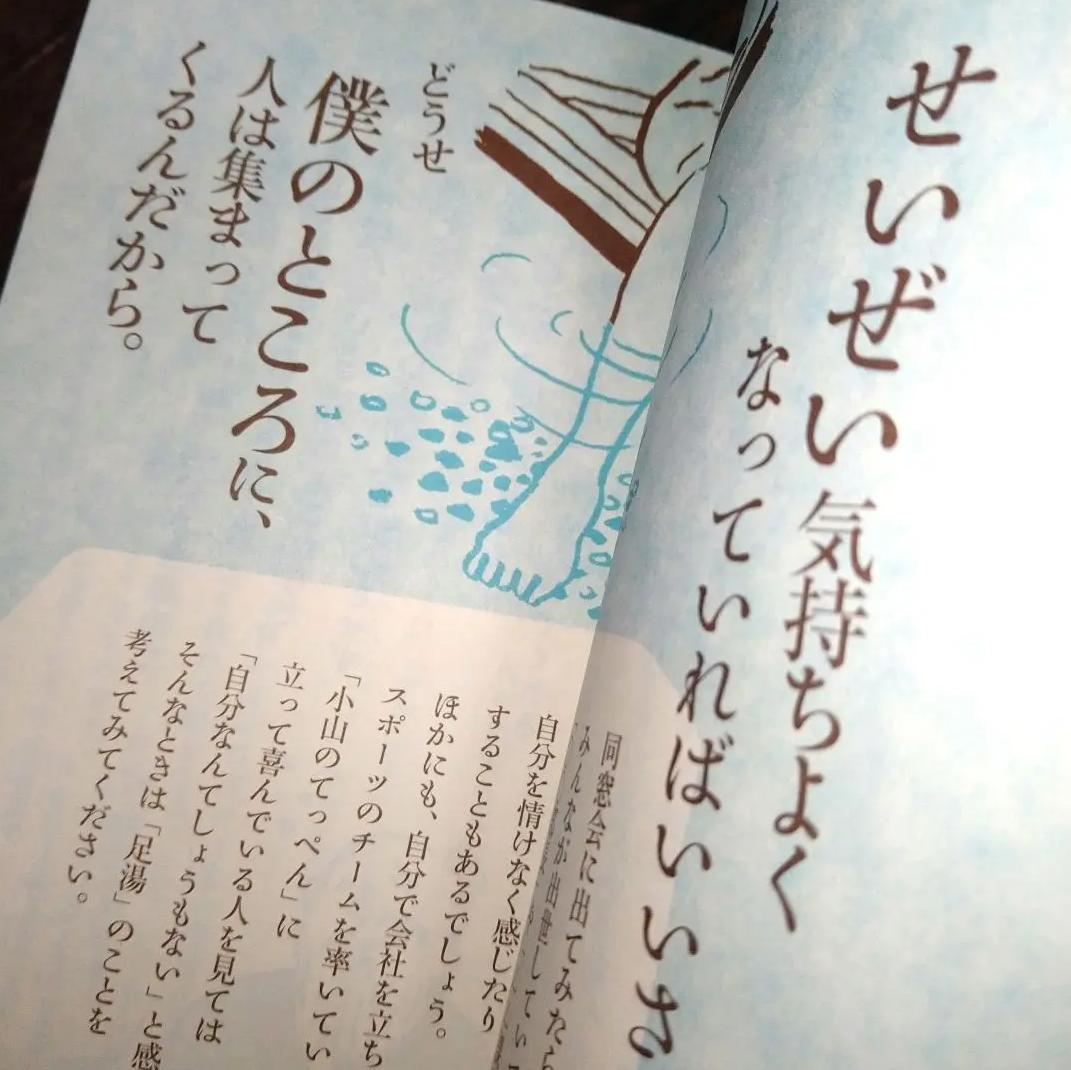 せいぜい気持ちよく
なっていればいいさ
どうせ
僕のところに、
人は集まって
くるんだから。
同窓会に出てみたら
みんなが出世してい
自分を情けなく感じたり
することもあるでしょう。
ほかにも、自分で会社を立ち
スポーツのチームを率いてい
「小山のてっぺん」に
立って喜んでいる人を見ては
「自分なんてしょうもない」と感
そんなときは「足湯」のことを
考えてみてください。